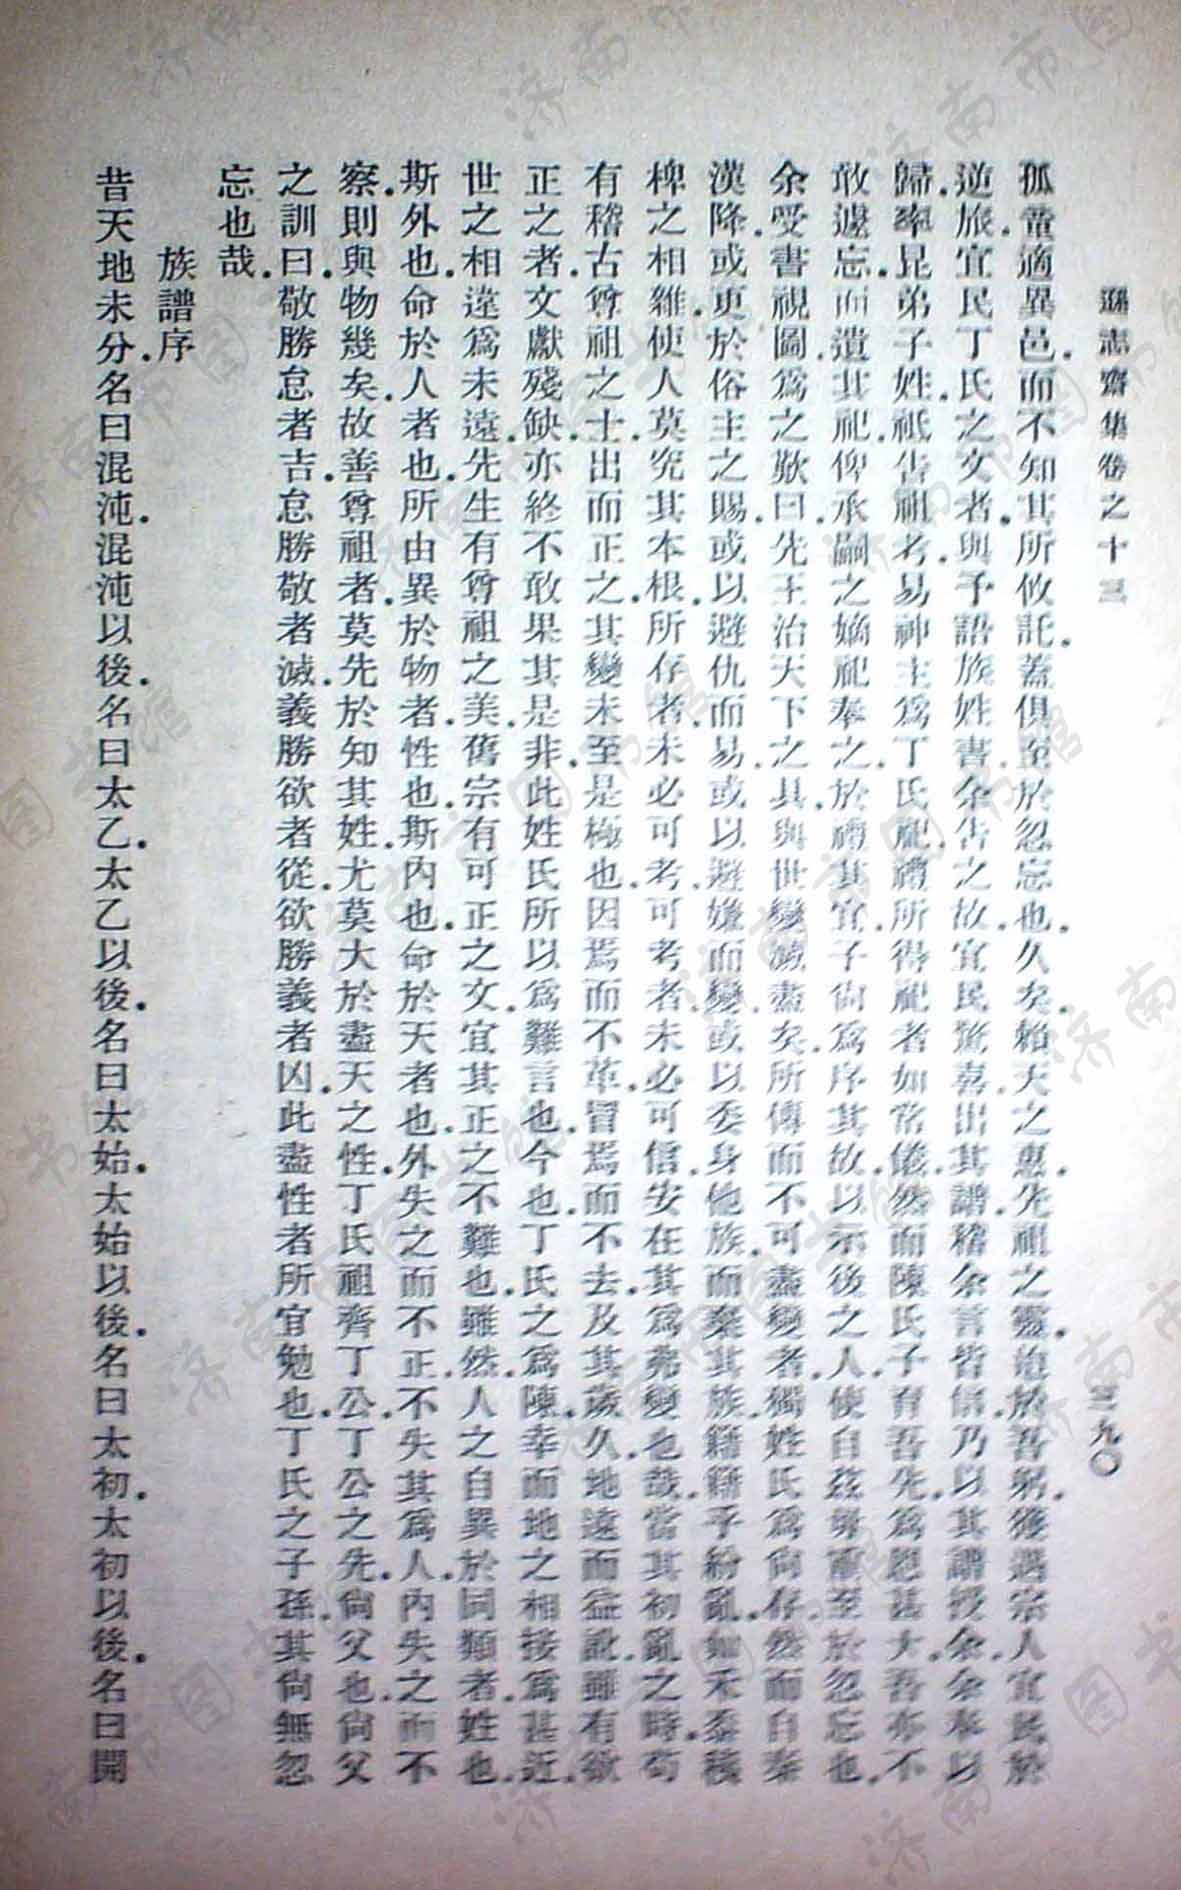 遜志齋集卷之十三
三九〇
孤童適異邑.而不知其所攸託.蓋俱至於忽忘也.久矣.賴天之惠.先祖之靈.迨於吾躬.獲遇宗人宜民於
逆旅.宜民丁氏之文者.與予語族姓書.余告之故.宜民驚喜.出其譜.稽余言皆信.乃以其譜授余.余奉以
歸.率昆弟子姓.祗告祖考.易神主爲丁氏.祀禮所得祀者如常儀.然而陳氏子育吾先.爲恩甚大.吾亦不
敢遽忘.而遺其祀.俾承嗣之嫡祀奉之.於禮其宜.子尙爲序其故.以示後之人.使自茲毋重至於忽忘也.
余受書視圖.爲之歎曰.先王治天下之具.與世變滅盡矣.所傳而不可盡變者.獨姓氏爲尙存.然而自秦
漢降.或更於俗主之賜.或以避仇而易.或以避嫌而變.或以委身他族.而棄其族.籍籍乎紛亂.如禾黍稊
稗之相雜.使人莫究其本根.所存者.未必可考.可考者.未必可信.安在其爲弗變也哉.當其初亂之時.苟
有稽古尊祖之士.出而正之.其變未至是極也.因焉而不革.冒焉而不去.及其歲久地遠而益訛.雖有欲
正之者.文獻殘缺.亦終不敢果其是非.此姓氏所以爲難言也.今也.丁氏之爲陳.幸而地之相接爲甚近.
世之相違爲未遠.先生有尊祖之美.舊宗有可正之文.宜其正之不難也.雖然.人之自異於同類者.姓也.
斯外也.命於人者也.所由異於物者.性也.斯內也.命於天者也.外失之而不正.不失其爲人.內失之而不
察.則與物幾矣.故善尊祖者.莫先於知其姓.尤莫大於盡天之性.丁氏祖齊丁公.丁公之先.尙父也.尙父
之訓曰.敬勝怠者吉.怠勝敬者滅.義勝欲者從.欲勝義者凶.此盡性者所宜勉也.丁氏之子孫.其尙無忽
忘也哉.
族譜序
昔天地未分.名曰混沌.混沌以後.名曰太乙.太乙以後.名曰太始.太始以後.名曰太初.太初以後.名曰開